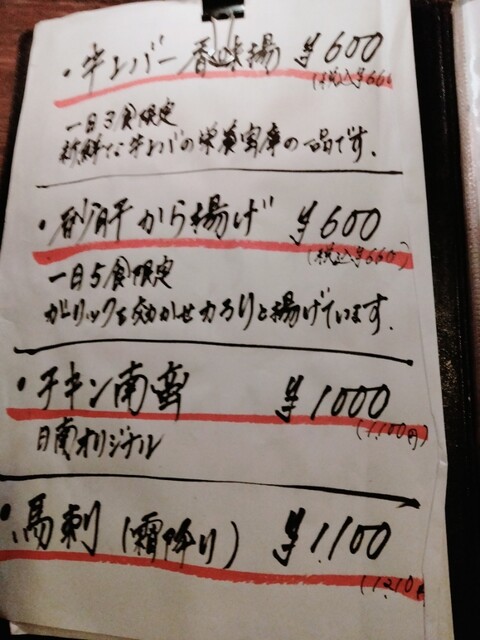 ・牛レバー香味揚 ¥600
(税込¥66
一日3食限定
新鮮な牛レバの栄養宝庫の一品です。
・砂肝から揚げ ¥600
(税込¥660)
一日5食限定
ガーリックを効かせカラリと揚げています。
・チキン南蛮 ¥1000
(1,100円)
日南オリジナル
・馬刺(霜降り) ¥1,100
(1,210円